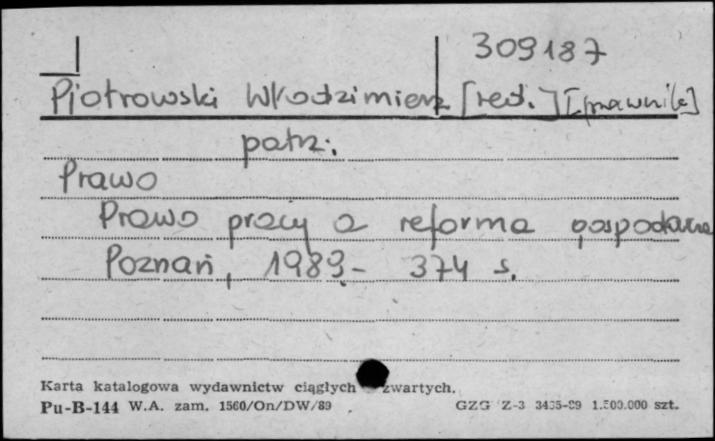 309187
Piotrowski Włodzimierz [red.] [prawnik]
patrz:
Prawo
Prawo pracy a reforma gospodarcza
Poznań, 1989.- 374 s.
Karta katalogowa wydawnictw ciągłych zwartych.
Pu-B-144 W.A. zam. 1560/On/DW/89 GZG Z-3 3435-89 1.500.000 szt.